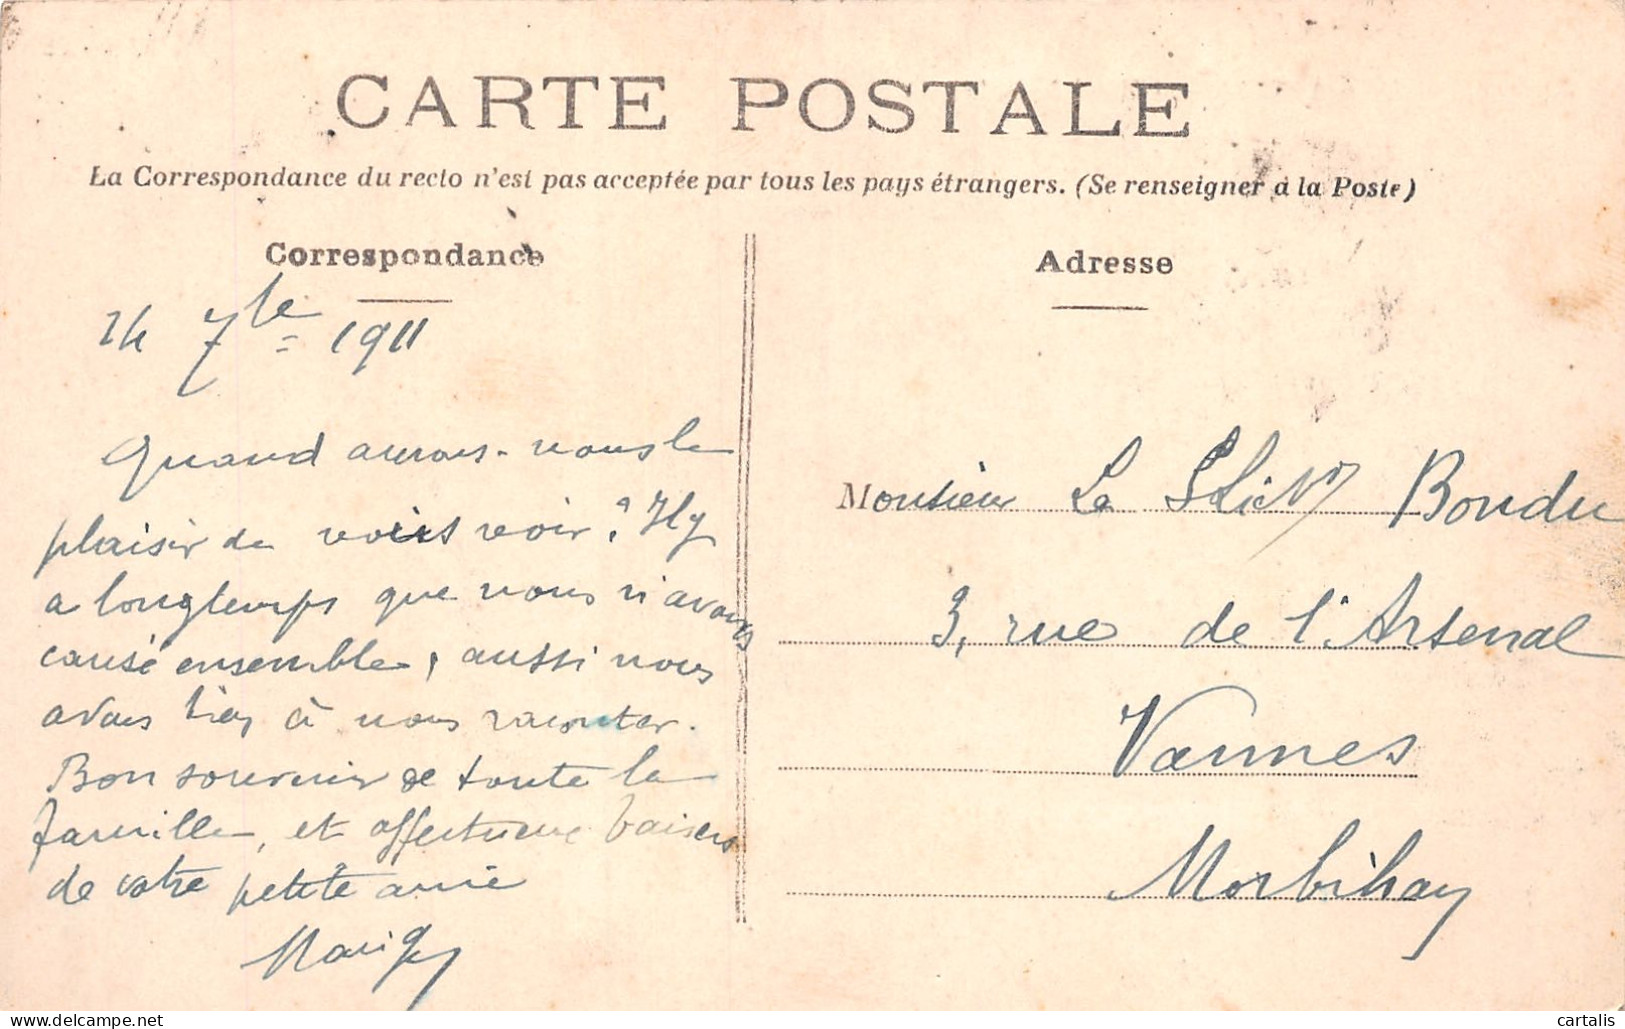 CARTE POSTALE
La Correspondance du recto n'est pas acceptée par tous les pays étrangers. (Se renseigner à la Poste)
Correspondance
24 7bre 1911
Quand aurons-nous le
plaisir de vous revoir ? Il y
a longtemps que nous n'avons
causé ensemble, aussi nous
avons bien à nous raconter.
Bon souvenir de toute la
famille, et affectueux baisers
de votre petite amie
Adresse
Monsieur Le Boudu
3, rue de l'Arsenal
Vannes
Morbihan
cartalis